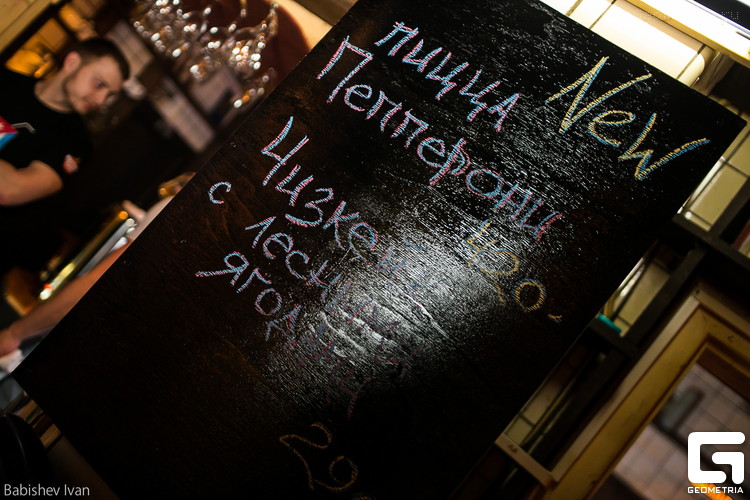 New
пицца
Пепперони
420-
Чизкейк
с лесными
ягодами
29
Babishev Ivan
GEOMETRIA